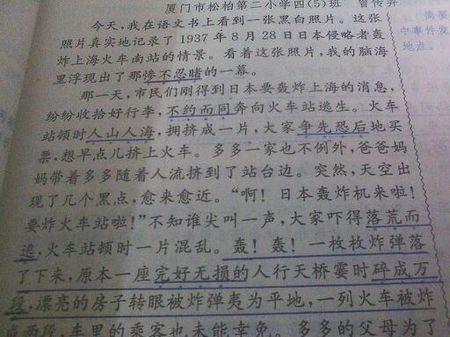 厦门市松柏第二小学四(5)班 曾传羿
今天,我在语文书上看到一张黑白照片。这张
照片真实地记录了1937年8月28日日本侵略者轰
炸上海火车南站的情景。看着这张照片,我的脑海
里浮现出了那惨不忍睹的一幕。
那一天,市民们刚得到日本要轰炸上海的消息,
纷纷收拾好行李,不约而同奔向火车站逃生。火车
站顿时人山人海,拥挤成一片,大家争先恐后地买
票,想早点儿挤上火车。多多一家也不例外,爸爸妈
妈带着多多随着人流挤到了站台边。突然,天空出
现了几个黑点,愈来愈近。“啊!日本轰炸机来啦!
要炸火车站啦!”不知谁尖叫一声,大家吓得落荒而
逃,火车站顿时一片混乱。轰!轰!一枚枚炸弹落
了下来,原本一座完好无损的人行天桥霎时碎成万
段,漂亮的房子转眼被炸弹夷为平地,一列火车被炸
成两段,车里的乘客也未能幸免。多多的父母为了
简要
中事件发
地点。